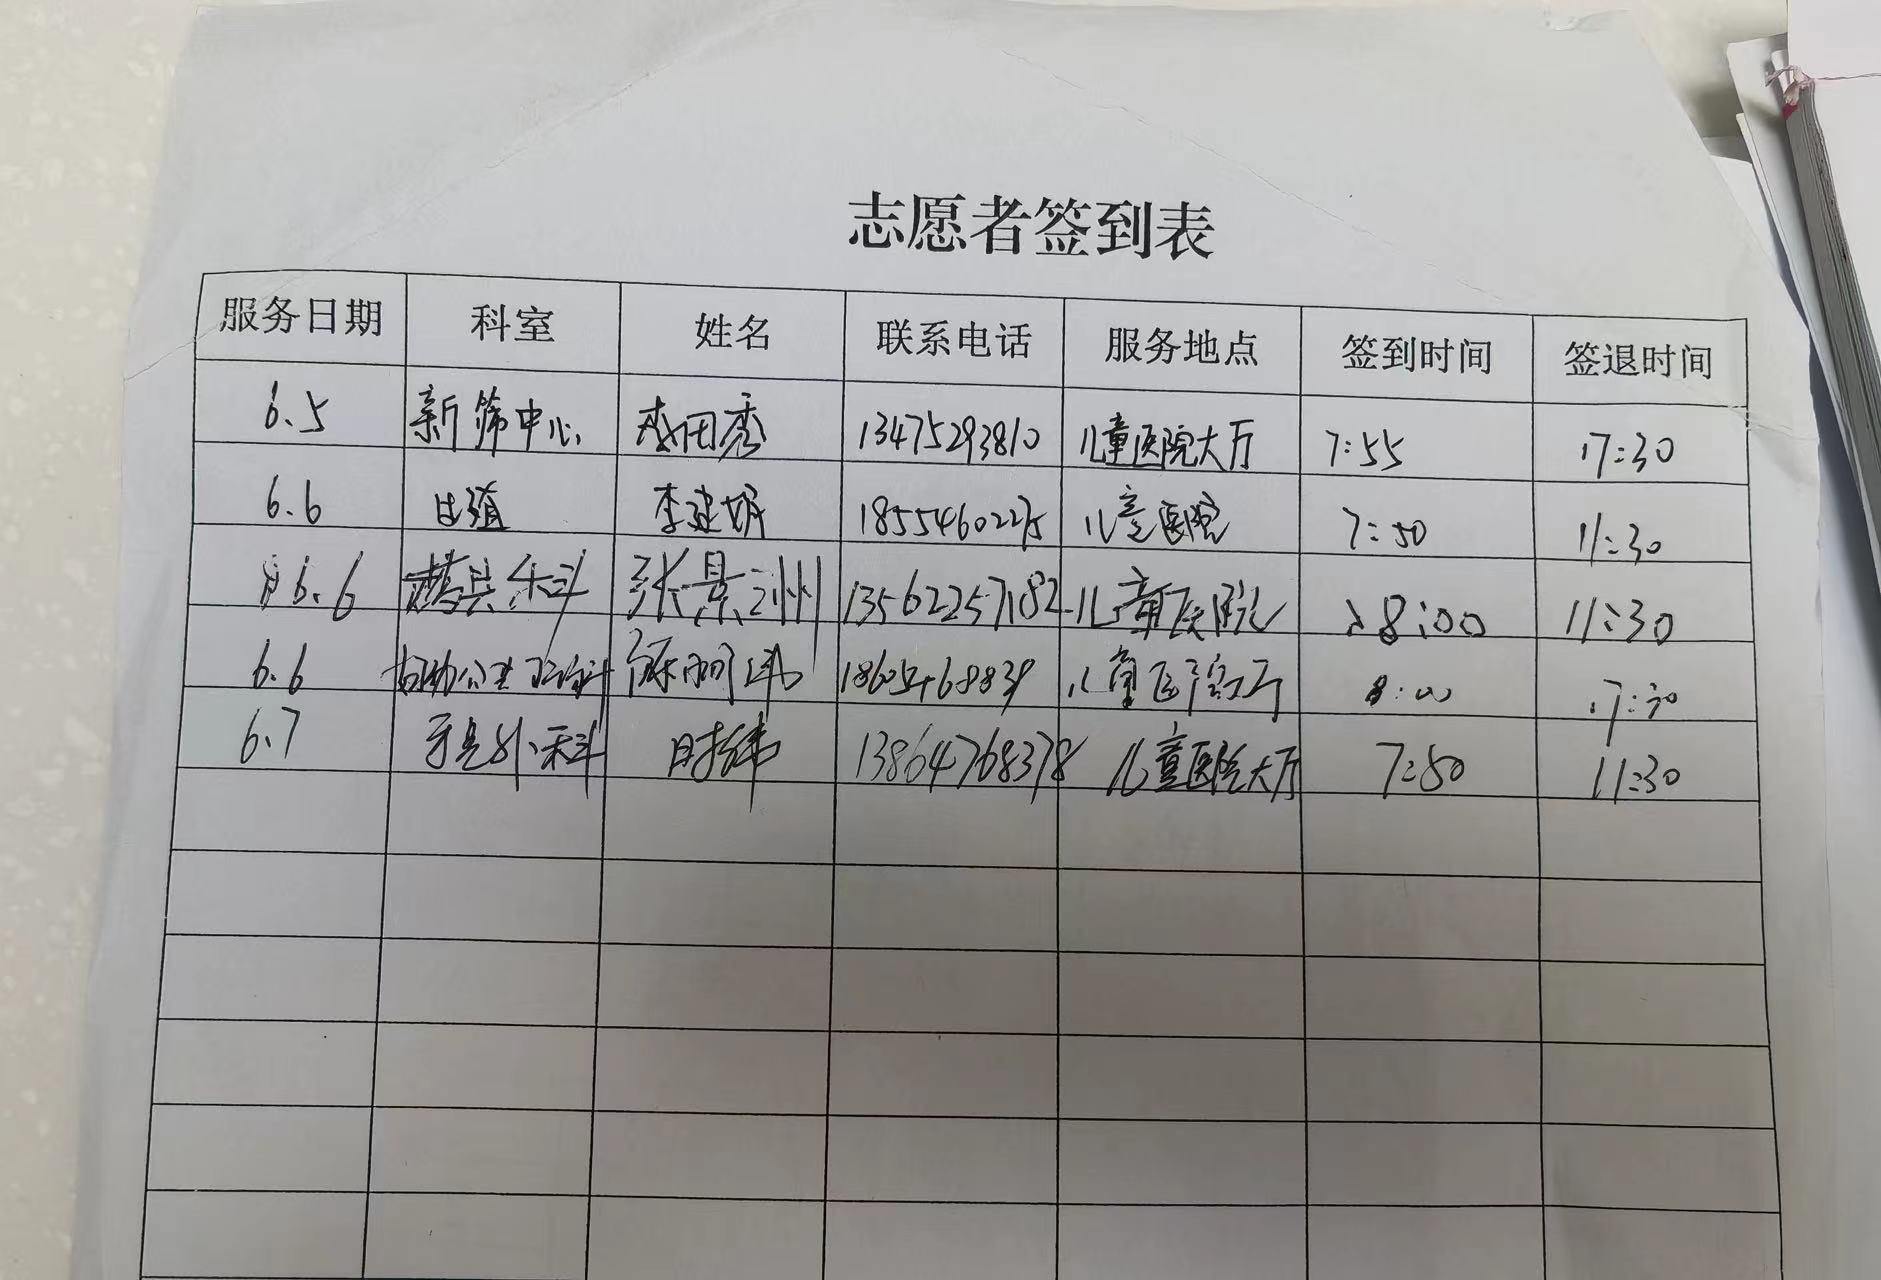 志愿者签到表
服务日期 科室 姓名 联系电话 服务地点 签到时间 签退时间
6.5 新筛中心 秀 13475293810 儿童医院大厅 7:55 17:30
6.6 生殖 李建 儿童医院 7:50 11:30
6.6 张景洲 13562257182 儿童医院 8:00 11:30
6.6 儿童医院大厅 8:00 17:30
6.7 外科 时纬 13864768378 儿童医院大厅 7:50 11:30